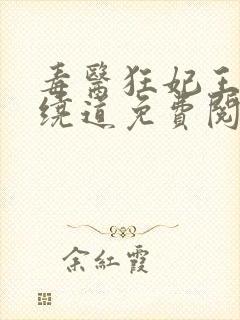 毒醫狂妃王
繞道免費閱
余紅霞